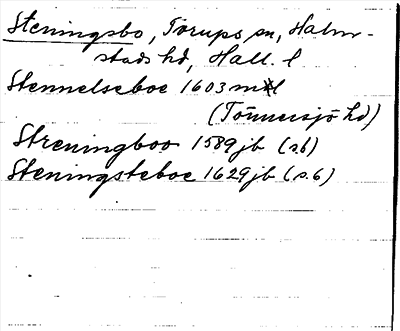 Steningsbo, Torups sn, Halm-
stads hd, Hall. l
Stennelseboe 1603 mtl
(Tönnersjö hd)
Streningboo 1589 jb (s.6)
Steningsteboe 1629 jb (s.6)